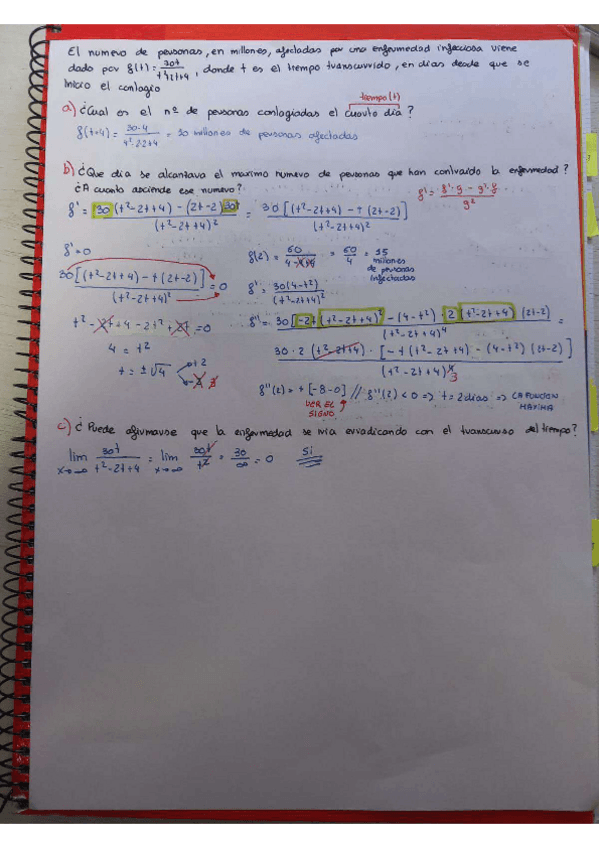 El numero de personas, en millones, afectadas por una enfermedad infecciosa viene
dado por f(t) = 30t / t²-2t+4, donde t es el tiempo transcurrido, en días desde que se
inicio el contagio
tiempo (t)
a) ¿Cual es el nº de personas contagiadas el cuarto día?
f(t=4) = 30·4 / 4²-2·2+4 = 10 millones de personas afectadas
b) ¿Que día se alcanzara el maximo numero de personas que han contraido la enfermedad?
¿A cuanto asciende ese numero?
f' = f'·g - g'·f / g²
f' = 30(t²-2t+4) - (2t-2)30t / (t²-2t+4)² = 30[(t²-2t+4) - t(2t-2)] / (t²-2t+4)²
f'=0
f(2) = 60 / 4-4+4 = 60/4 = 15 millones de personas infectadas
30[(t²-2t+4) - t(2t-2)] / (t²-2t+4)² = 0
f' = 30(4-t²) / (t²-2t+4)²
t²-2t+4-2t²+2t=0
f'' = 30[-2t(t²-2t+4)² - (4-t²)·2(t²-2t+4)(2t-2) / (t²-2t+4)⁴ =
4 = t²
30·2(t²-2t+4)·[-t(t²-2t+4) - (4-t²)(2t-2)] / (t²-2t+4)⁴ 3
t = ±√4 +2 -2
f''(2) = + [-8-0] // f''(2) < 0 => t = 2 dias => LA FUNCION MAXIMA
VER EL SIGNO
c) ¿Puede afirmarse que la enfermedad se iria erradicando con el transcurso del tiempo?
lim x→∞ 30t / t²-2t+4 = lim x→∞ 30t / t² = 30/∞ = 0 Si